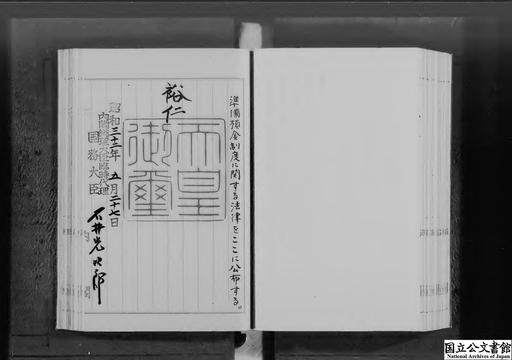 準備預金制度に関する法律をここに公布する。
裕仁
天皇
御璽
昭和三十二年五月二十七日
内閣総理大臣臨時代理
国務大臣
石井光次郎
国立公文書館
National Archives of Japan